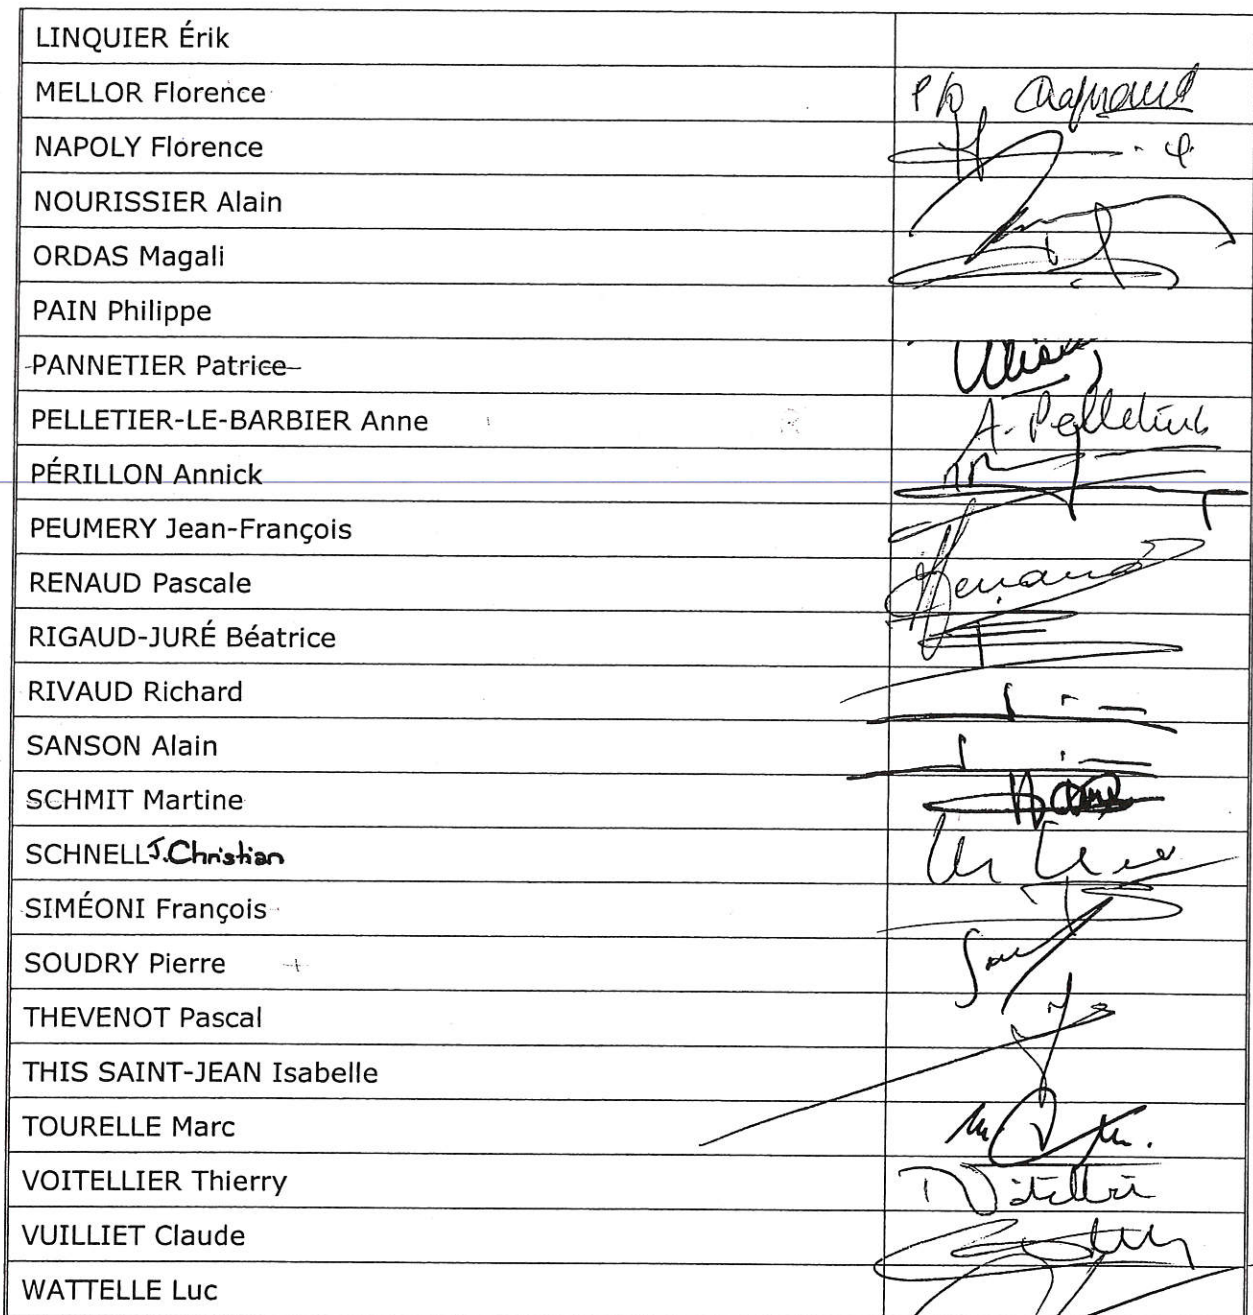 LINQUIER Érik
MELLOR Florence P/O
NAPOLY Florence
NOURISSIER Alain
ORDAS Magali
PAIN Philippe
PANNETIER Patrice
PELLETIER-LE-BARBIER Anne A. Pelletier
PÉRILLON Annick
PEUMERY Jean-François
RENAUD Pascale Renaud
RIGAUD-JURÉ Béatrice
RIVAUD Richard
SANSON Alain
SCHMIT Martine
SCHNELL J.Christian
SIMÉONI François
SOUDRY Pierre
THEVENOT Pascal
THIS SAINT-JEAN Isabelle
TOURELLE Marc
VOITELLIER Thierry
VUILLIET Claude
WATTELLE Luc